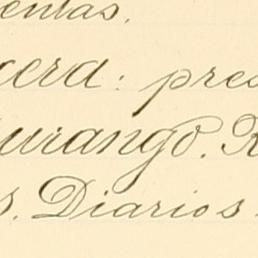 entas.
cera: pres
Durango. R
s. Diarios